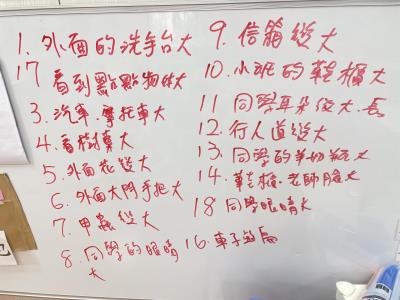 1. 外面的洗手台大
17 看到點點物變大
3. 汽車.摩托車大
4. 看樹葉大
5. 外面花變大
6. 外面大門手把大
7. 甲蟲變大
8. 同學的眼睛
大
9. 信箱變大
10. 小班的鞋櫃大
11 同學耳朵變大.長
12. 行人道變大
13. 同學的羊奶瓶大
14. 鞋櫃.老師臉大
18 同學眼睛大
16. 車子變長